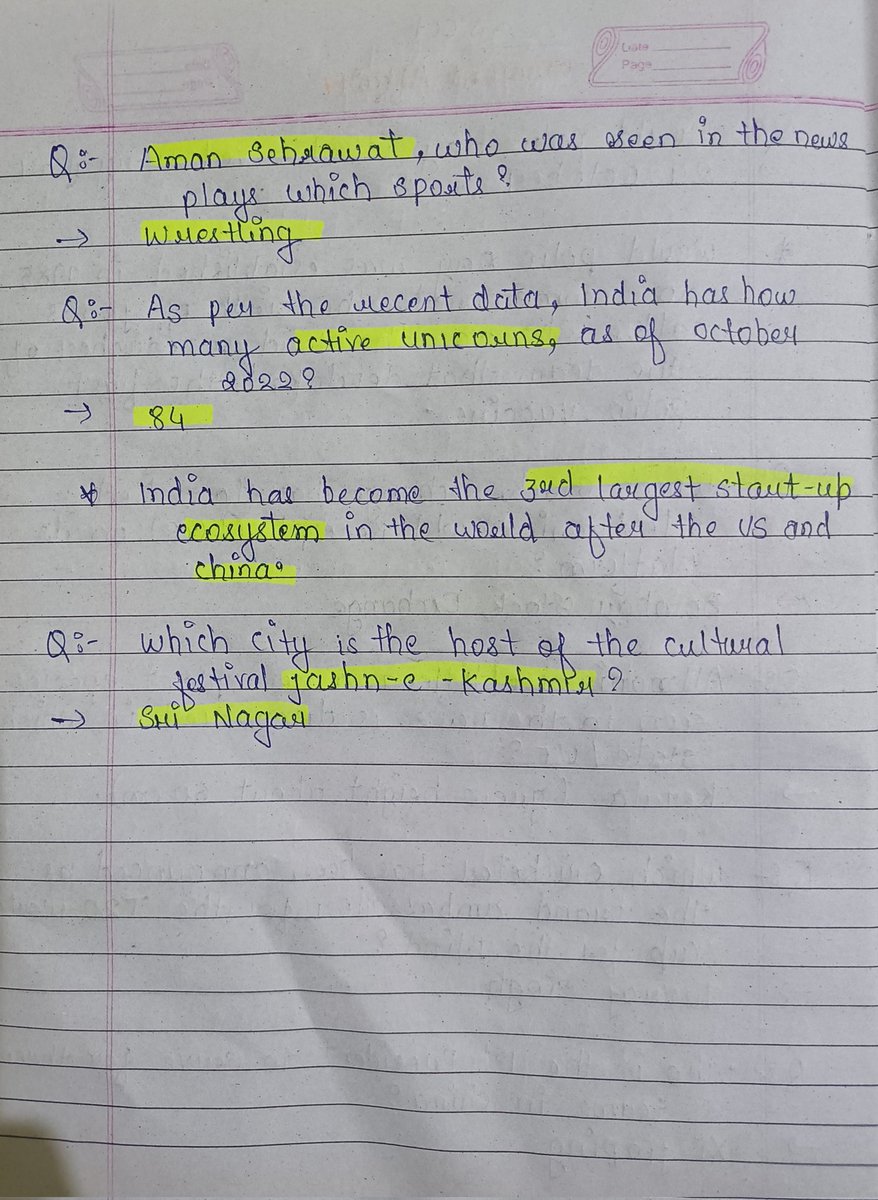 Date
Page
Q:- Aman Sehrawat, who was seen in the news
plays which sports?
→ Wrestling
Q:- As per the recent data, India has how
many active unicorns, as of October
2022?
→ 84
* India has become the 3rd largest start-up
ecosystem in the world after the US and
china.
Q:- Which city is the host of the cultural
festival jashn-e-Kashmir?
→ Sri Nagar